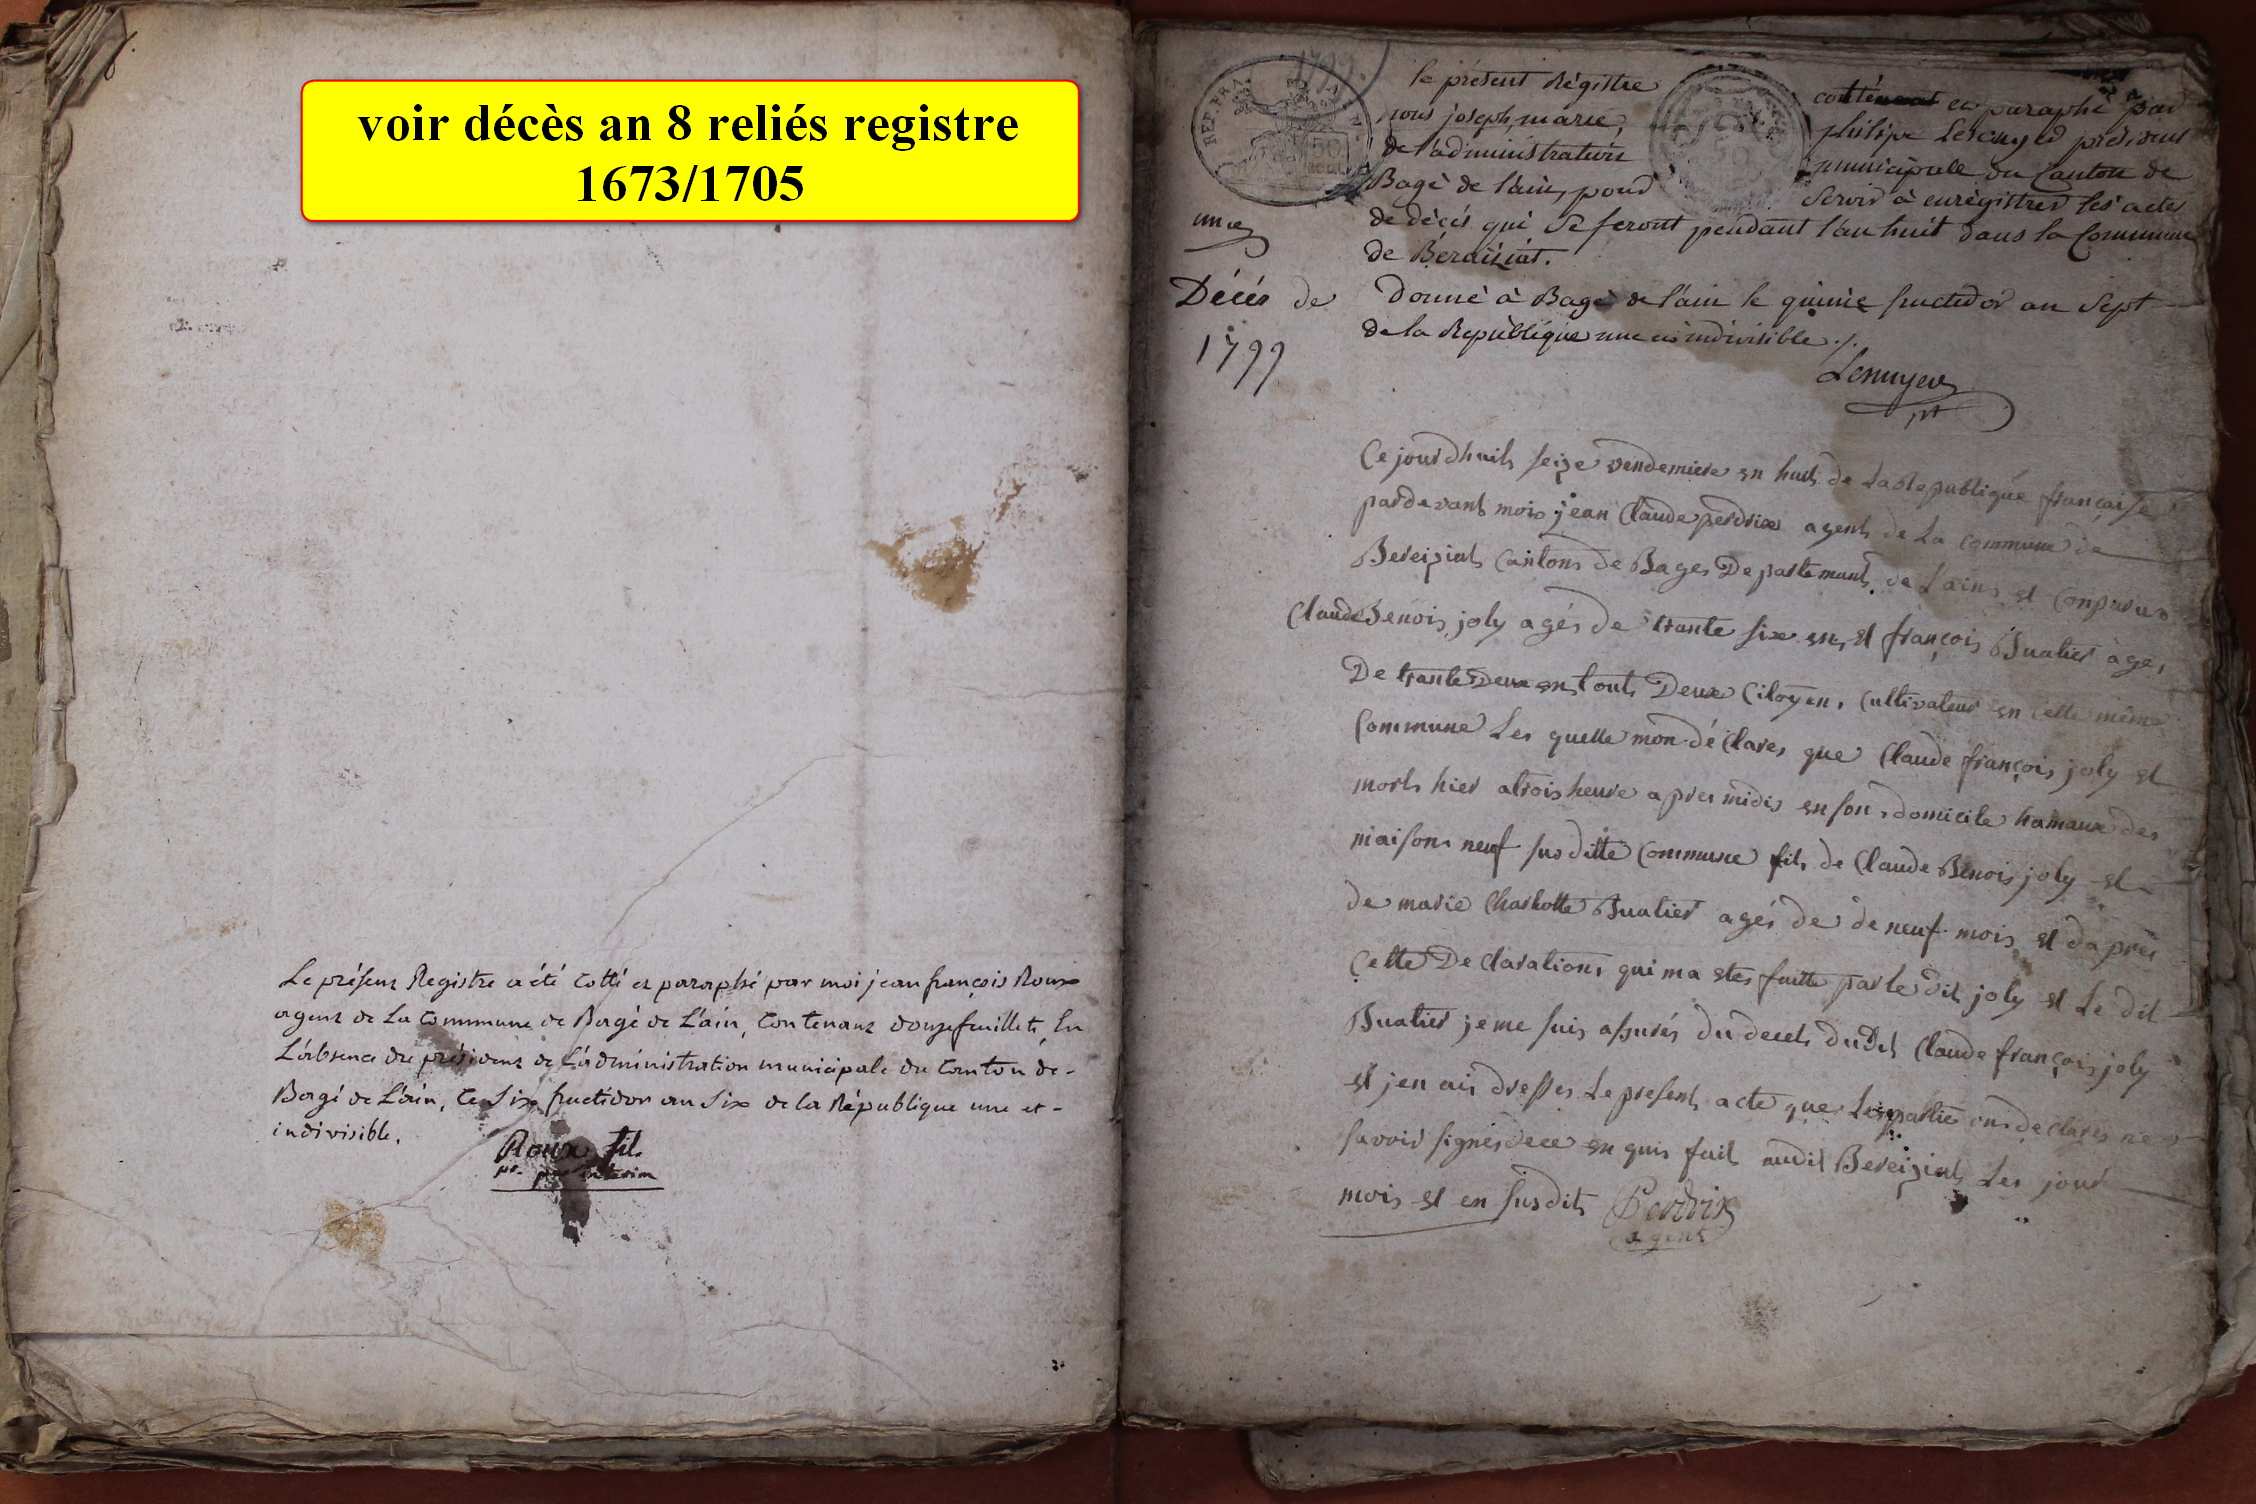 voir décès an 8 reliés registre
1673/1705
Le présent Registre a été Cotté et paraphé par moi jean françois Roux
agent de La Commune de Bagé de L'ain, Contenant douze feuillets, En
L'absence du président de L'administration municipale du Canton de-
Bagé de L'ain, Ce Six fructidor an Six de la République une et-
indivisible.
Roux fil.
pr. par interim
1799.
REP. FRA
le présent Régistre contenant et paraphé par
nous joseph, marie, philipe Lesmyer président
de l'administration municipale du Canton de
Bagé de l'ain, pour Servir à enrégistrer les actes
de décés qui Se feront pendant l'an huit dans la Commune
de Béraiziat.
Décés de
1799
Donné à Bagé de l'ain le quinze fructidor an Sept
de la République une et indivisible ./.
Ce jourdhuit seize vendemiere en huit de La Republique française
pardevant mois jean Claude perdrix agent de La commune de
Bereiziat Canton de Bages Departemant de Lain est Conparus
Claude Benois joly agés de trante six ens et françois Buatier ages
De trante Deux ens tout Deux Citoyen, Cultivateur en cette même
Commune Les quelle mon déClares que Claude françois joly et
mort hier a trois heure apres midis en son domicile hamaux des
maisons neuf susditte Commune fils de Claude Benois joly et
de marie Charlotte Buatier agés de de neuf mois et da près
Cette Declarations qui ma etes faitte par le dit joly et Le dit
Buatier je me suis assurés du decet dudit Claude françois joly
et jen ais dresses Le present acte que Les partie ons declares ne
savoir signes dece en quis fait audit Bereiziat Les jour
mois et en susdit Perdrix
agent